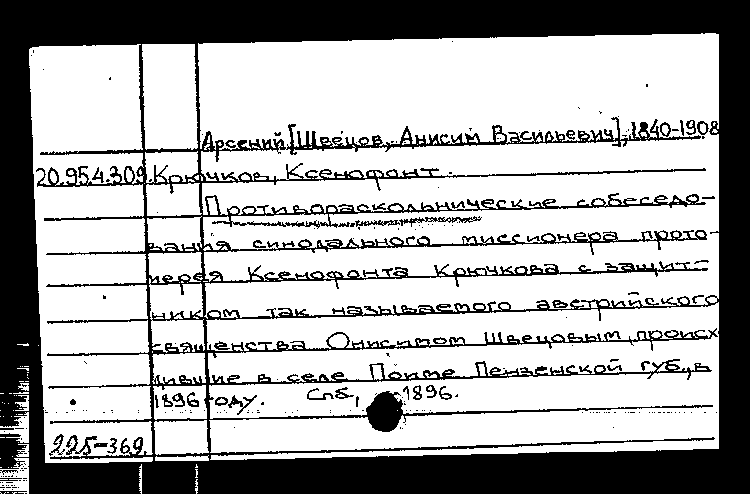 Арсений [Швецов, Анисим Васильевич], 1840-1908
20.954.309. Крючков, Ксенофонт.
Противораскольнические собеседо-
вания синодального миссионера прото-
иерея Ксенофонта Крючкова с защит-
ником так называемого австрийского
священства Онисимом Швецовым, происх
дившие в селе Поиме Пензенской губ., в
1896 году. Спб, 1896.
225-369.